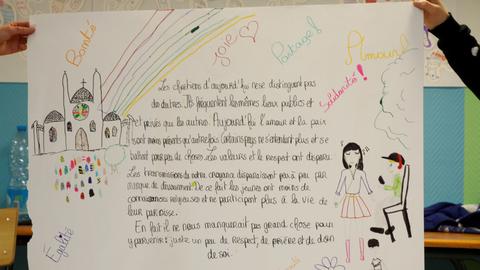 Bonté
Joie
Partages
Amour!
Solidarité!
Les chrétiens d'aujourd'hui ne se distinguent pas
des autres. Ils fréquentent les mêmes lieux publics et
et privés que les autres. Aujourd'hui l'amour et la paix
sont moins présents qu'autrefois. Certains pays ne s'entendent plus et se
battent pour peu de choses. Les valeurs et le respect ont disparu.
Les transmissions de notre croyance disparaissent peu à peu par
manque de dévouement. De ce fait les jeunes ont moins de
connaissances religieuses et ne participent plus à la vie de
leur paroisse.
En fait il ne nous manquerait pas grand chose pour
y parvenir : juste un peu de respect, de prière et de don
de soi.
Égalité